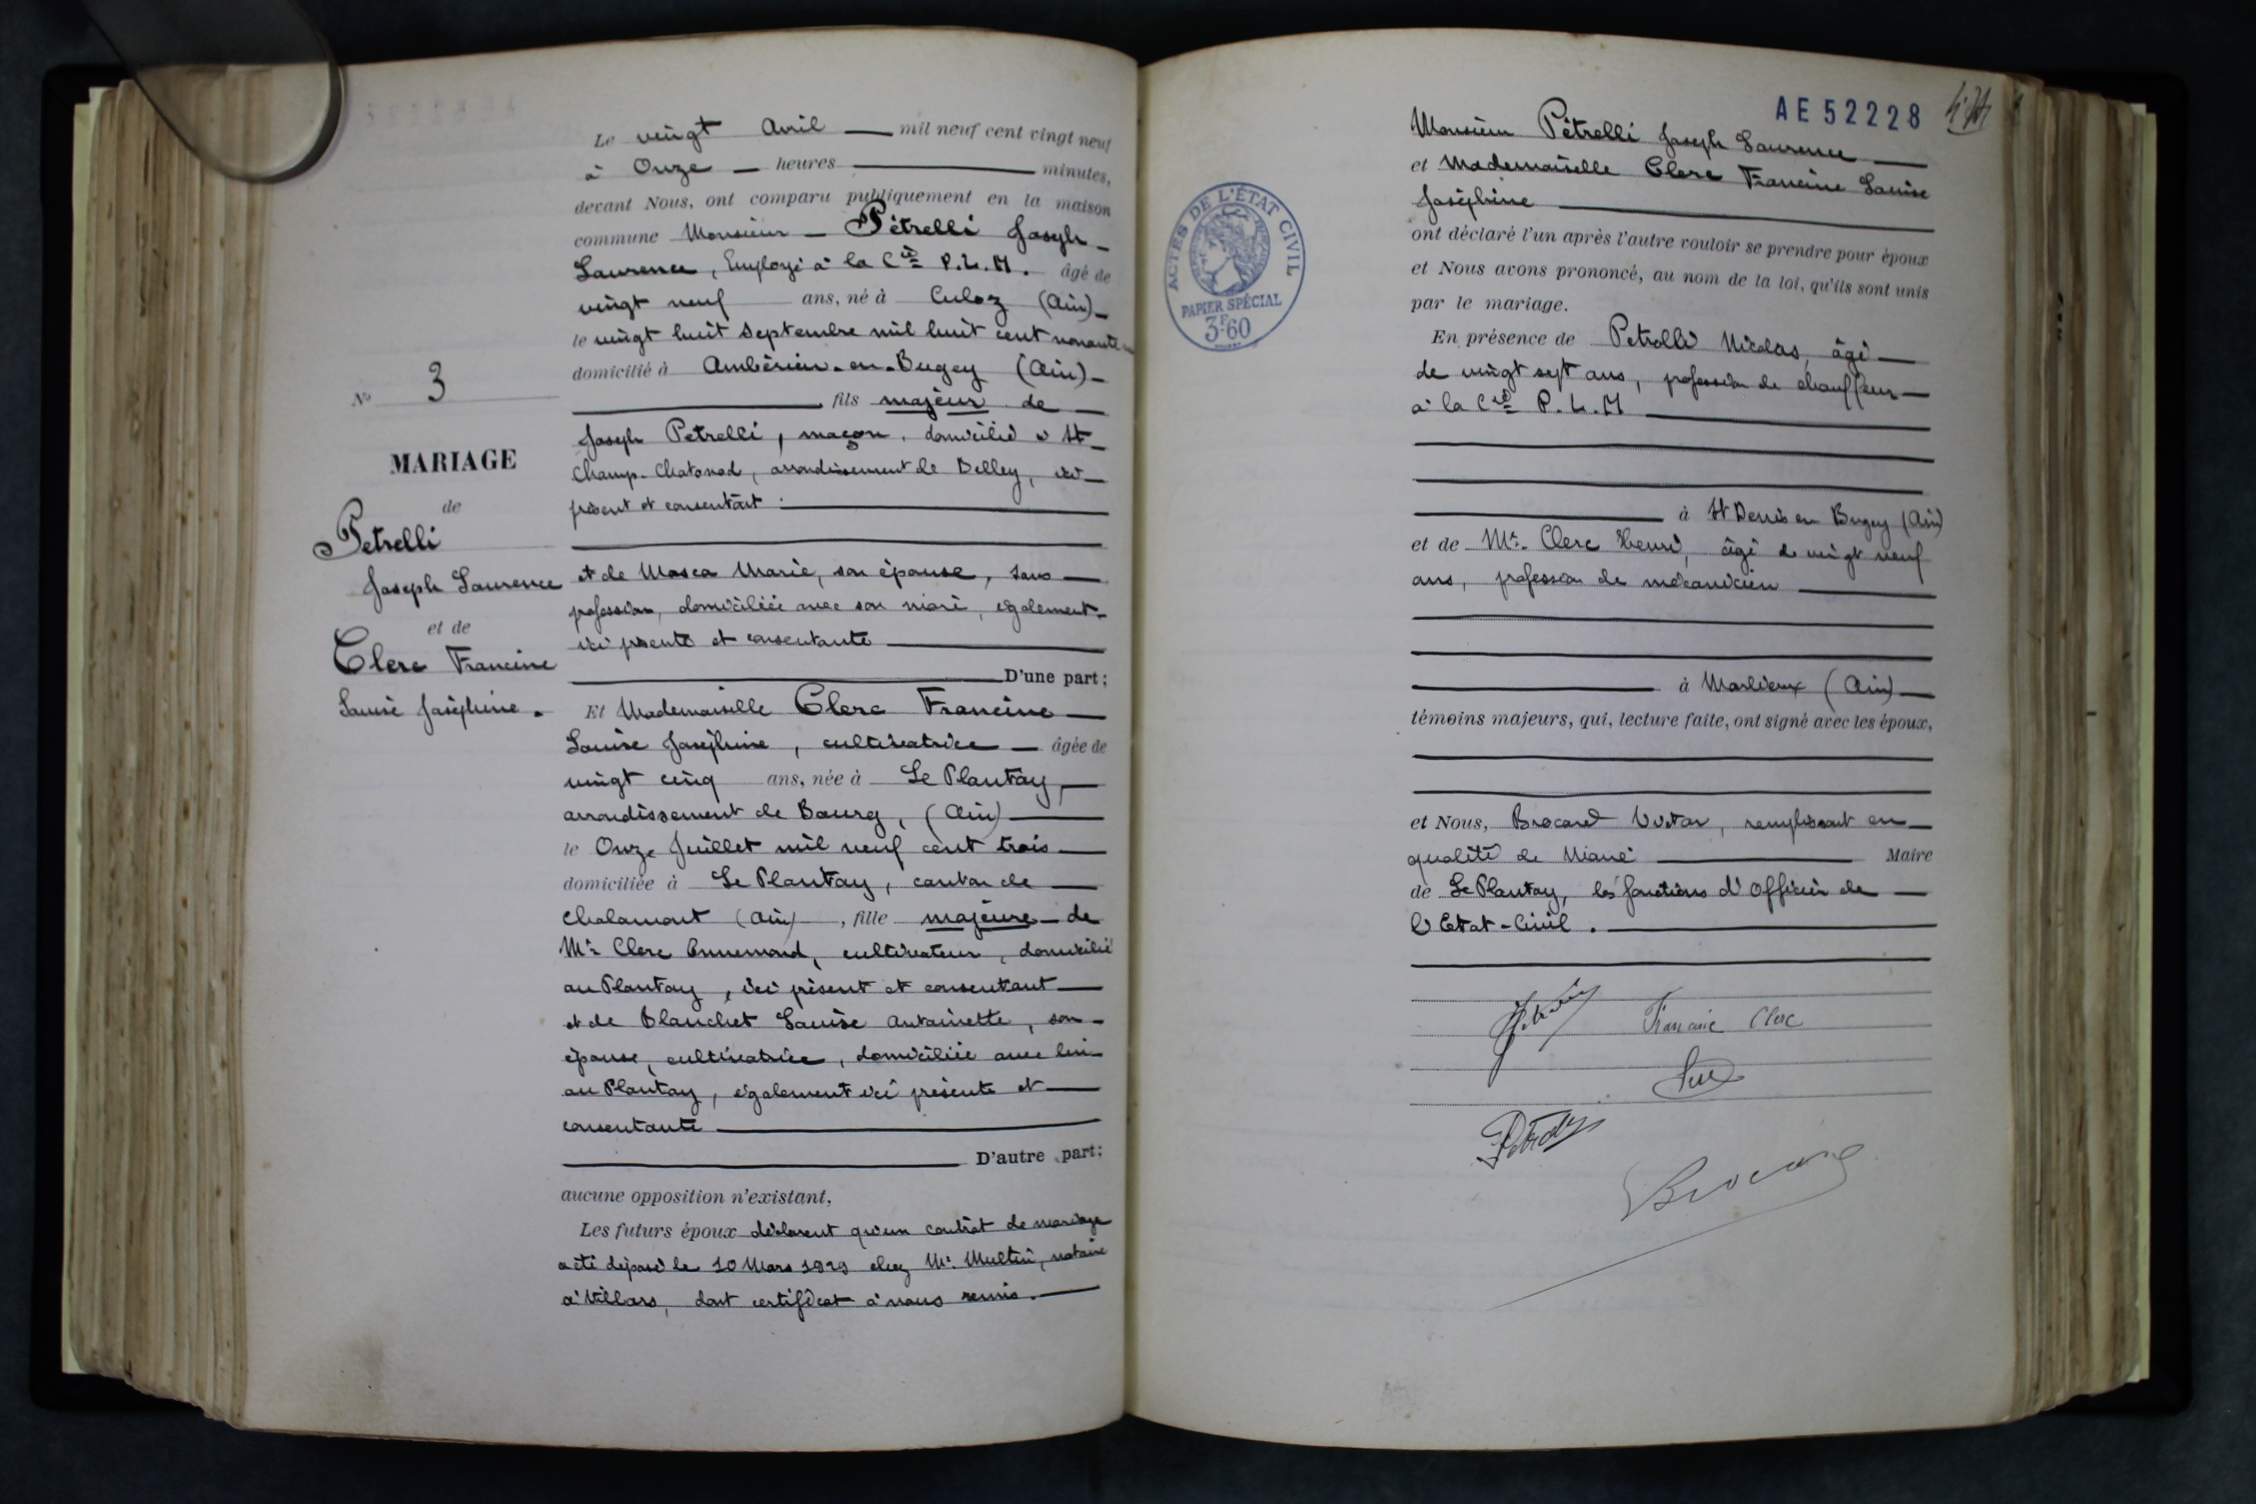 Le vingt Avril mil neuf cent vingt neuf
à Onze heures minutes,
devant Nous, ont comparu publiquement en la maison
commune Monsieur Pétrelli Joseph
Laurence, Employé à la Cie P.L.M. âgé de
vingt neuf ans, né à Culoz (Ain)
le vingt huit Septembre mil huit cent nonante
domicilié à Ambérieu-en-Bugey (Ain)
fils majeur de
Joseph Petrelli, maçon, domicilié à St
Champ-Chatonod, arrondissement de Belley, ici
présent et consentant
et de Masca Marie, son épouse, sans
profession, domiciliée avec son mari, également
ici présente et consentante
D'une part;
Et Mademoiselle Clerc Francine
Louise Joséphine, cultivatrice âgée de
vingt cinq ans, née à Le Plantay,
arrondissement de Bourg, (Ain)
le Onze Juillet mil neuf cent trois
domiciliée à Le Plantay, canton de
Chalamont (Ain), fille majeure de
Mr Clerc Ennemond, cultivateur, domicilié
au Plantay, ici présent et consentant
et de Blanchet Louise Antoinette, son
épouse, cultivatrice, domiciliée avec lui
au Plantay, également ici présente et
consentante
D'autre part;
aucune opposition n'existant,
Les futurs époux déclarent qu'un contrat de mariage
a été déposé le 10 Mars 1929 chez Mr notaire
à Villars, dont certificat à nous remis.
No 3
MARIAGE
de
Petrelli
Joseph Laurence
et de
Clerc Francine
Louise Joséphine.
AE52228
ACTES DE L'ÉTAT CIVIL
PAPIER SPÉCIAL
3F60
Monsieur Pétrelli Joseph Laurence
et Mademoiselle Clerc Francine Louise
Joséphine
ont déclaré l'un après l'autre vouloir se prendre pour époux
et Nous avons prononcé, au nom de la loi, qu'ils sont unis
par le mariage.
En présence de Petrelli Nicolas, âgé
de vingt sept ans, profession de chauffeur
à la Cie P.L.M
à St Denis en Bugey (Ain)
et de Mr. Clerc Henri, âgé de vingt neuf
ans, profession de mécanicien
à Marlieux (Ain)
témoins majeurs, qui, lecture faite, ont signé avec les époux,
et Nous, Brocard Victor, remplissant en
qualité de Maire Maire
de Le Plantay, les fonctions d'Officier de
l'Etat-Civil.
Francine Clerc